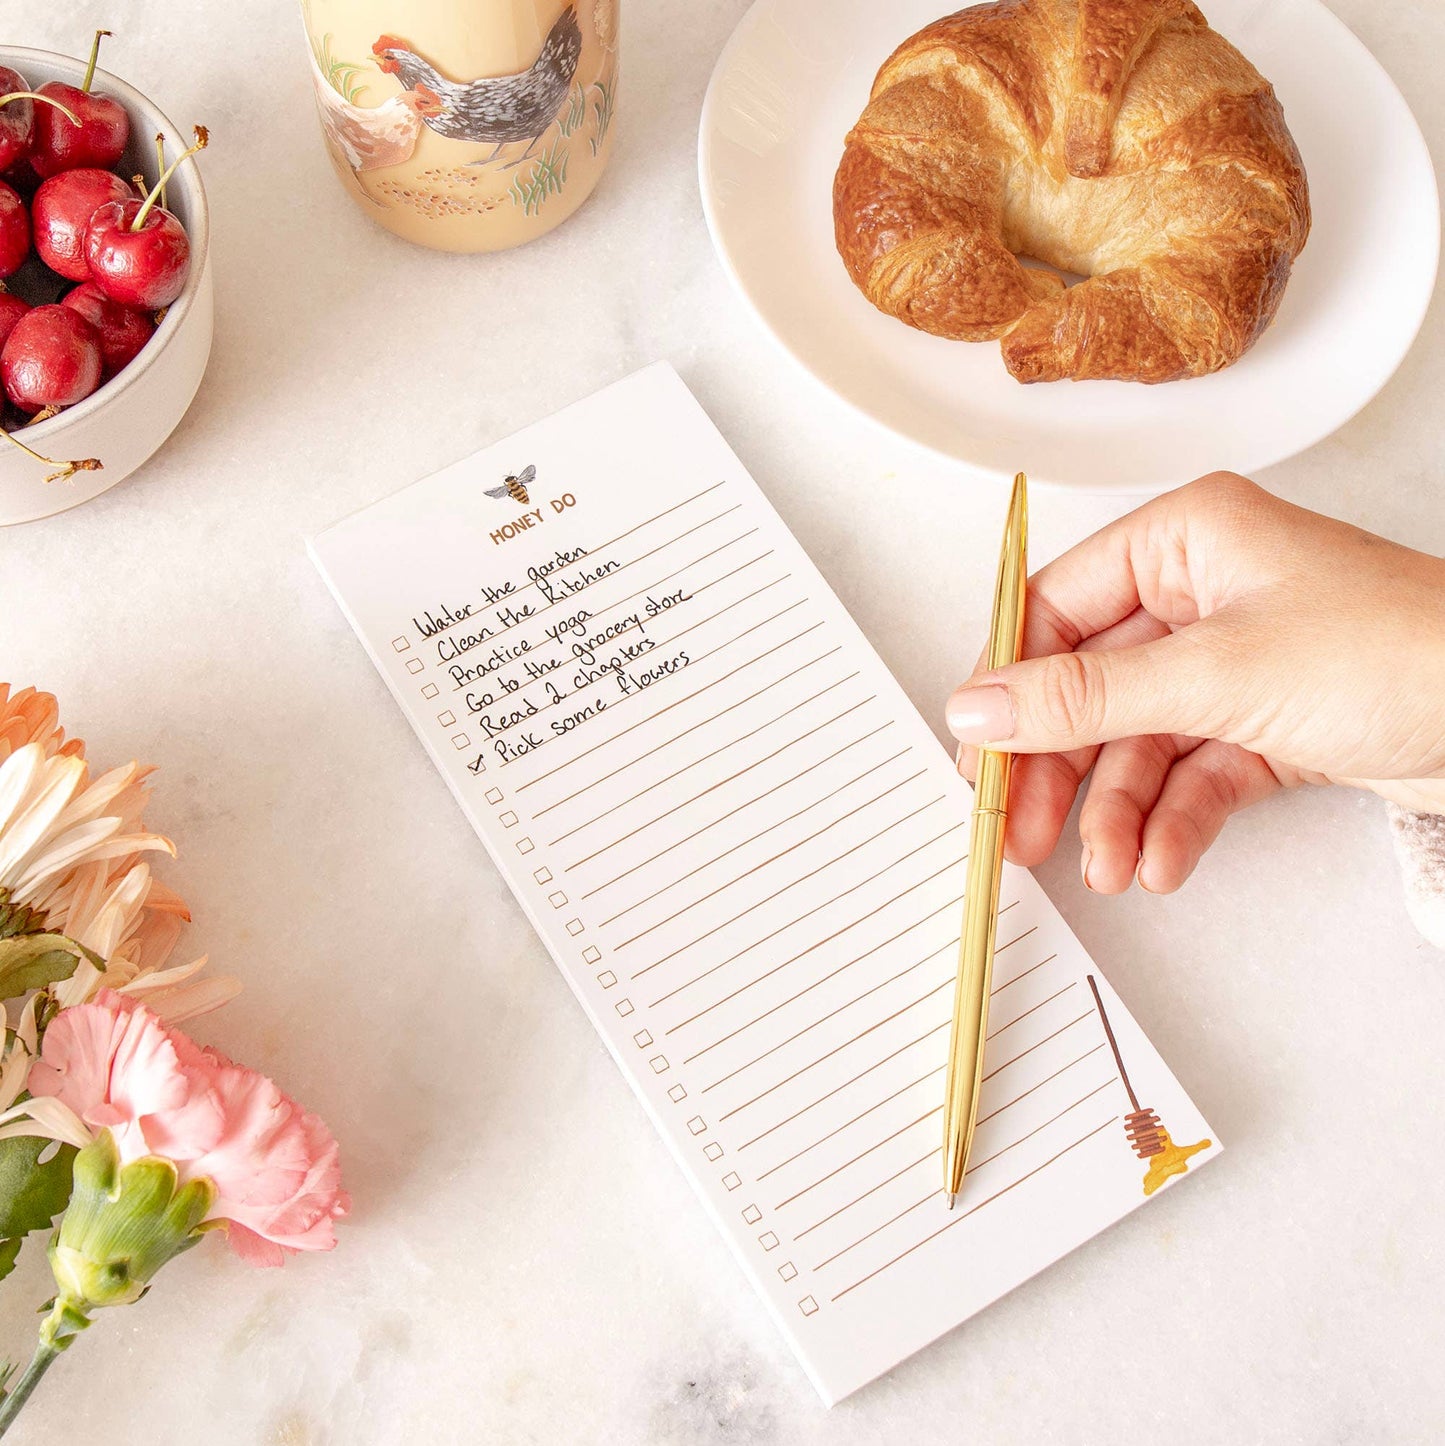 HONEY DO
Water the garden
Clean the Kitchen
Practice yoga
Go to the grocery store
Read 2 chapters
Pick some flowers